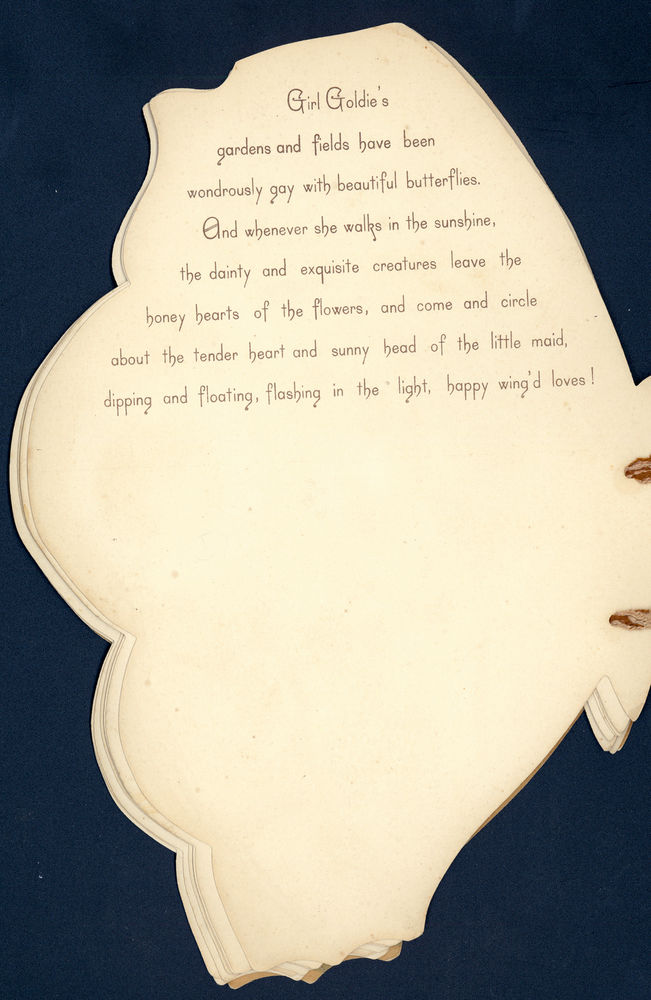 Girl Goldie's
gardens and fields have been
wondrously gay with beautiful butterflies.
And whenever she walks in the sunshine,
the dainty and exquisite creatures leave the
honey hearts of the flowers, and come and circle
about the tender heart and sunny head of the little maid,
dipping and floating, flashing in the light, happy wing'd loves!